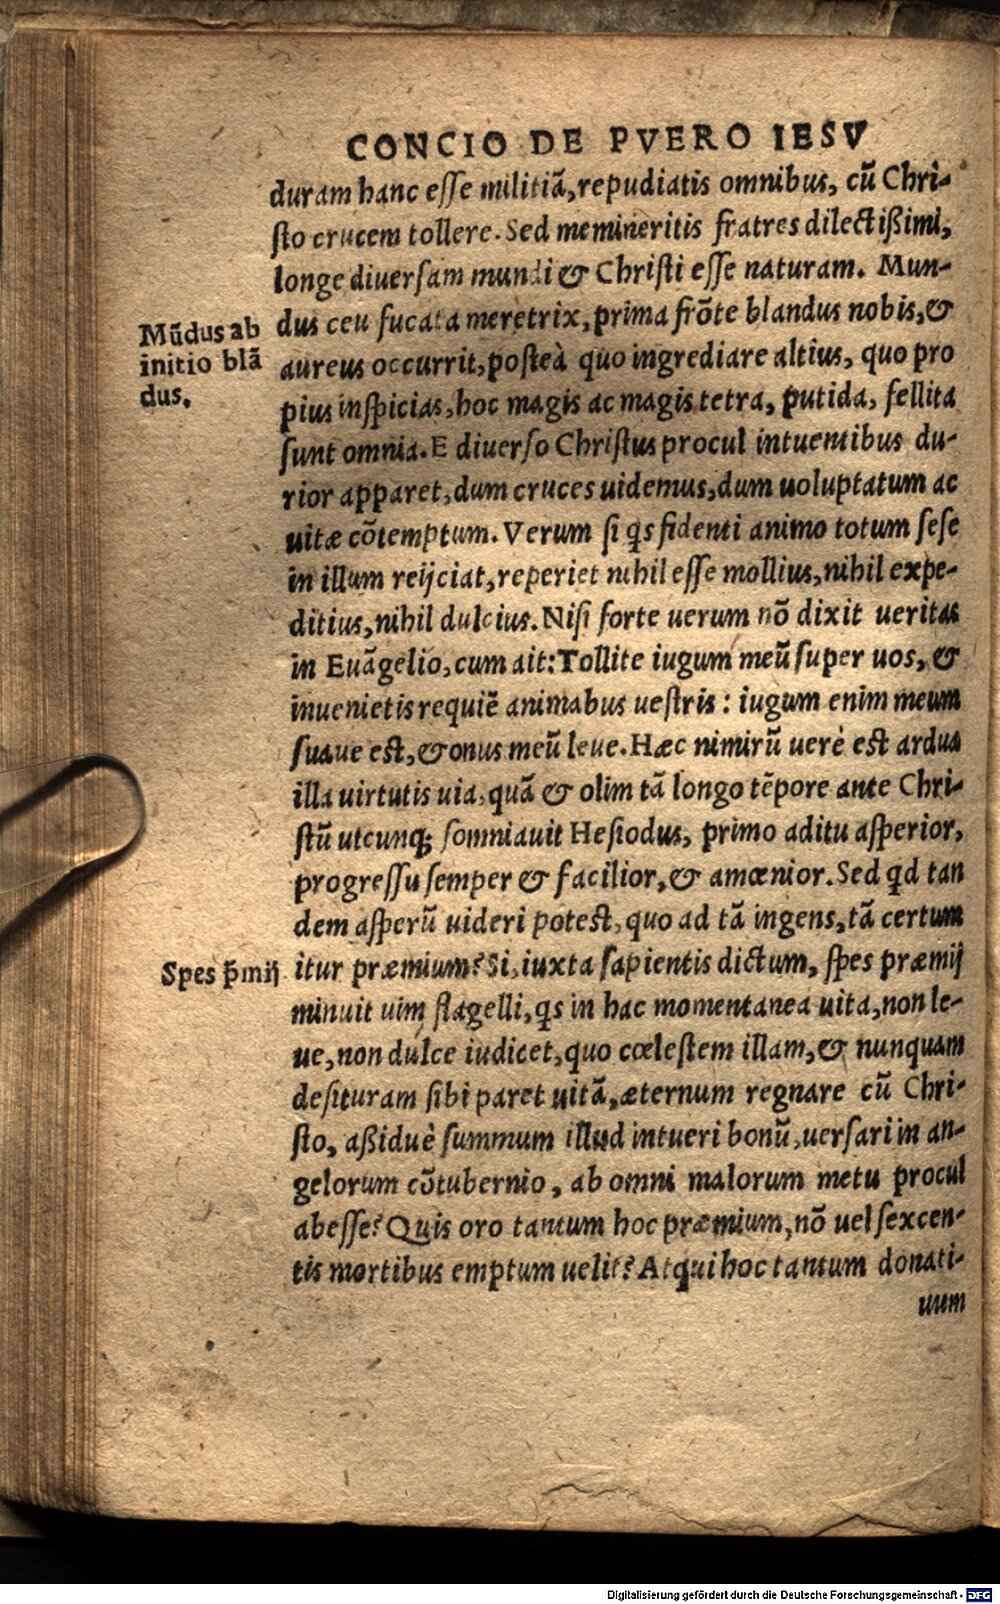 CONCIO DE PVERO IESV
duram hanc esse militiā, repudiatis omnibus, cū Chri-
sto crucem tollere. Sed memineritis fratres dilectißimi,
longe diuersam mundi & Christi esse naturam. Mun-
dus ceu fucata meretrix, prima frōte blandus nobis, &
Mūdus ab
initio blā
dus.
aureus occurrit, posteà quo ingrediare altius, quo pro
pius inspicias, hoc magis ac magis tetra, putida, fellita
sunt omnia. E diuerso Christus procul intuentibus du-
rior apparet, dum cruces uidemus, dum uoluptatum ac
uitæ cōtemptum. Verum si qs fidenti animo totum sese
in illum reijciat, reperiet nihil esse mollius, nihil expe-
ditius, nihil dulcius. Nisi forte uerum nō dixit ueritas
in Euāgelio, cum ait: Tollite iugum meū super uos, &
inuenietis requiē animabus uestris : iugum enim meum
suaue est, & onus meū leue. Hæc nimirū uerè est ardua
illa uirtutis uia, quā & olim tā longo tēpore ante Chri-
stū utcunq; somniauit Hesiodus, primo aditu asperior,
progressu semper & facilior, & amœnior. Sed qd tan
dem asperū uideri potest, quo ad tā ingens, tā certum
Spes p̄mij
itur præmium? Si, iuxta sapientis dictum, spes præmij
minuit uim flagelli, qs in hac momentanea uita, non le-
ue, non dulce iudicet, quo cœlestem illam, & nunquam
desituram sibi paret uitā, æternum regnare cū Chri-
sto, aßiduè summum illud intueri bonū, uersari in an-
gelorum cōtubernio, ab omni malorum metu procul
abesse? Quis oro tantum hoc præmium, nō uel sexcen-
tis mortibus emptum uelit? Atqui hoc tantum donati-
uum
Digitalisierung gefördert durch die Deutsche Forschungsgemeinschaft - DFG